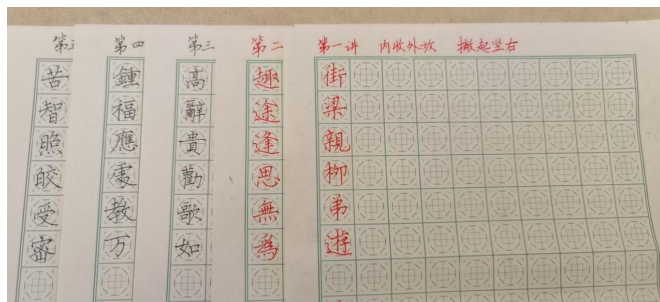 第一讲 内收外放 撇起竖右
街
梁
親
柳
弟
遊
第二
趣
途
逢
思
無
為
第三
高
辭
貴
勸
歌
如
第四
鍾
福
應
處
教
万
第五
苦
智
照
皎
受
審